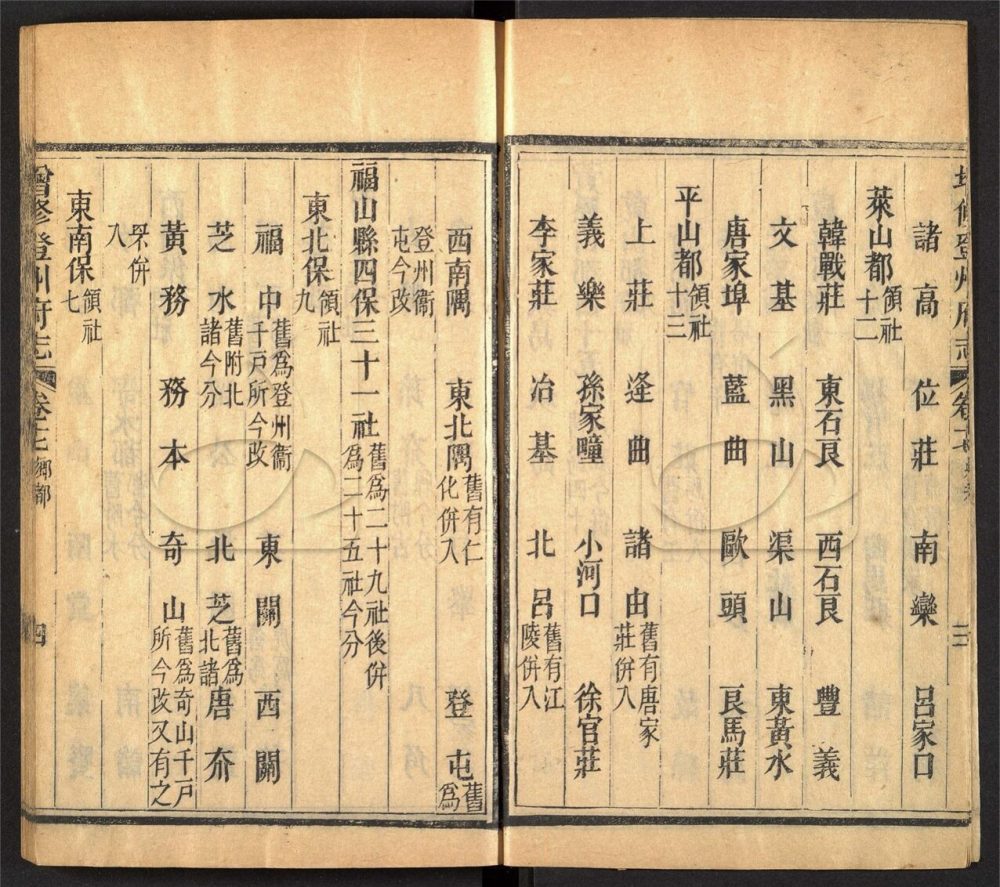 登州府志
諸高 位莊 南欒 呂家口
萊山都領社十二
韓戰莊 東石良 西石良 豐義
文基 黑山 渠山 東黃水
唐家埠 藍曲 歐頭 良馬莊
平山都領社十三
上莊 逄曲 諸由舊有唐家莊併入
義樂 孫家疃 小河口 徐官莊
李家莊 冶基 北呂舊有江陵併入
西南隅 東北隅舊有仁化併入 登屯舊爲
登州衞屯今改
福山縣四保三十一社舊爲二十九社後併爲二十五社今分
東北保領社九
福中舊爲登州衞千戸所今改 東關 西關
芝水舊附北諸今分 北芝舊爲北諸 唐夼
黃務 務本 奇山舊爲奇山千戸所今改又有之
罘併入
東南保領社七
增修登州府志 鄉都 四